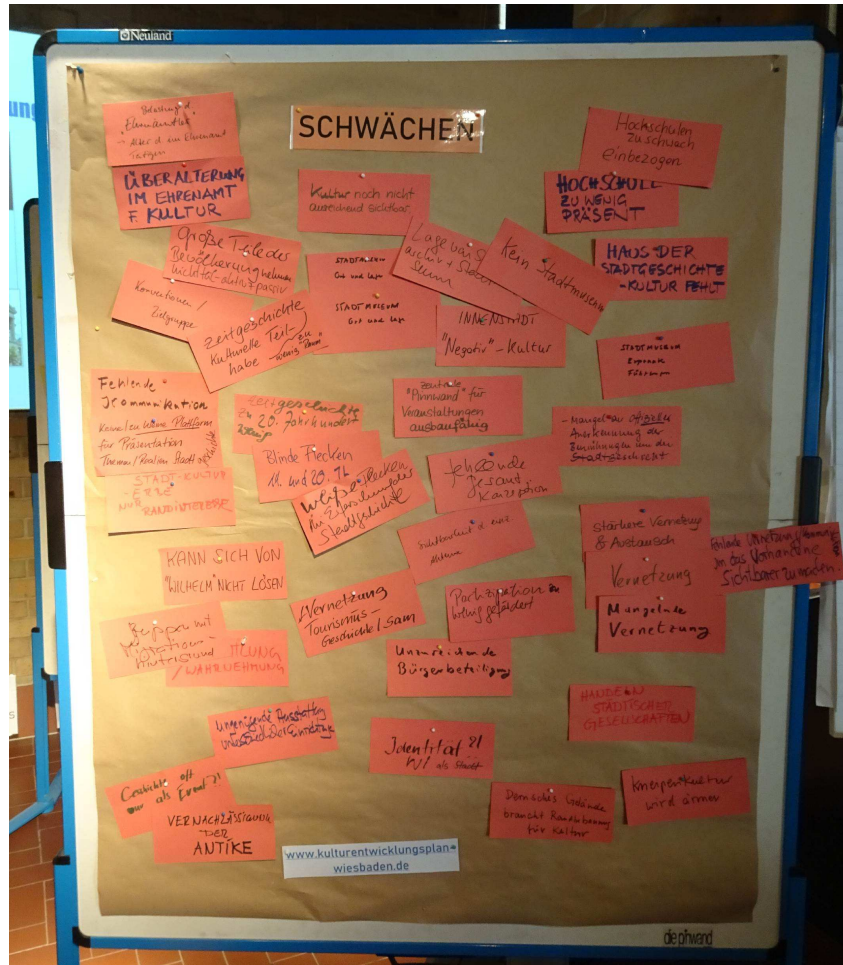 Neuland
SCHWÄCHEN
Ehrenämtler
- Alter d. im Ehrenamt
Tätigen
ÜBERALTERUNG
IM EHRENAMT
F. KULTUR
Kultur noch nicht
ausreichend sichtbar
Hochschulen
zu schwach
einbezogen
HOCHSCHULE
ZU WENIG
PRÄSENT
Große Teile der
Bevölkerung nehmen
nicht teil - aktiv + passiv
STADTMUSEUM
Gut und Lage
STADTMUSEUM
Gut und Lage
Lage von
archiv +
Kein Stadtmuseum
HAUS DER
STADTGESCHICHTE
-KULTUR FEHLT
Konventionen /
Zielgruppe
Zeitgeschichte
Kulturelle Teil-
habe - wenig Raum
INNENSTADT
"Negativ"-Kultur
STADTMUSEUM
Exponate
Führungen
Fehlende
Kommunikation
keine Plattform
für Präsentation
Themen/Realien Stadtgeschichte
Zeitgeschichte
zu 20. Jahrhundert
wenig
zentrale
"Pinnwand" für
Veranstaltungen
ausbaufähig
- Mangel an offizieller
Anerkennung der
Bemühungen um die
Blinde Flecken
19. und 20. Jh
weiße Flecken
in Erforschung der
Stadtgeschichte
fehlende
Gesamt
Konzeption
STADT-KULTUR
-ERBE
NUR RANDINTERESSE
Sichtbarkeit d.
Stärkere Vernetzung
& Austausch
Fehlende Vernetzung
um das Vorhandene
Sichtbarer zu machen.
KANN SICH VON
"WILHELM" NICHT LÖSEN
Vernetzung
Mangelnde
Vernetzung
Vernetzung
Tourismus-
Geschichte/
Partizipation zu
wenig gefördert
Gruppen mit
Migrations-
hintergrund
/WAHRNEHMUNG
Unzureichende
Bürgerbeteiligung
HANDELN
STÄDTISCHER
GESELLSCHAFTEN
Ungenügende Ausstattung
Identität ?!
WI als Stadt
Geschichte oft
nur als Event?!
VERNACHLÄSSIGUNG
DER
ANTIKE
Dernsches Gelände
braucht Randbebauung
für Kultur
Kneipenkultur
wird ärmer
www.kulturentwicklungsplan-
wiesbaden.de
die pinwand